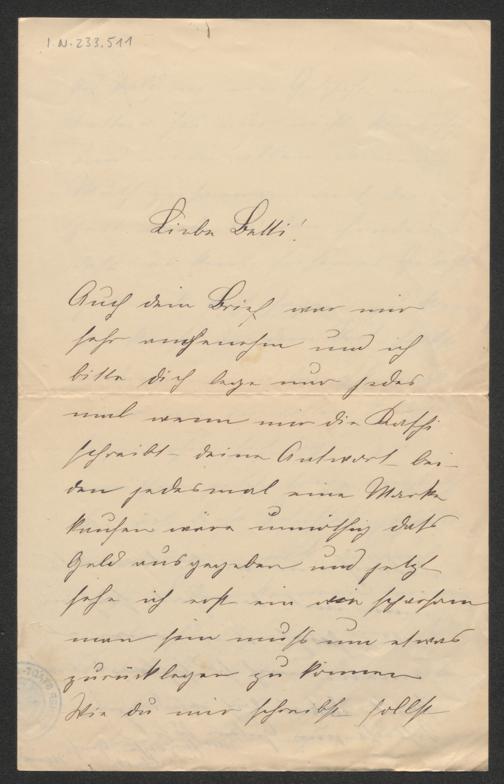 I.N. 233.511
Liebe Betti!
Auch dein Brief war mir
sehr angenehm und ich
bitte dich lege nur jedes
mal wenn mir die Kathi
schreibt – deine Antwort – bei –
den jedesmal eine Marke
kaufen wäre unnöthig dass
Geld ausgegeben und jetzt
sehe ich erst ein wie sparsam
man sein muss um etwas
zurücklegen zu können
Wie du mir schreibst sollst